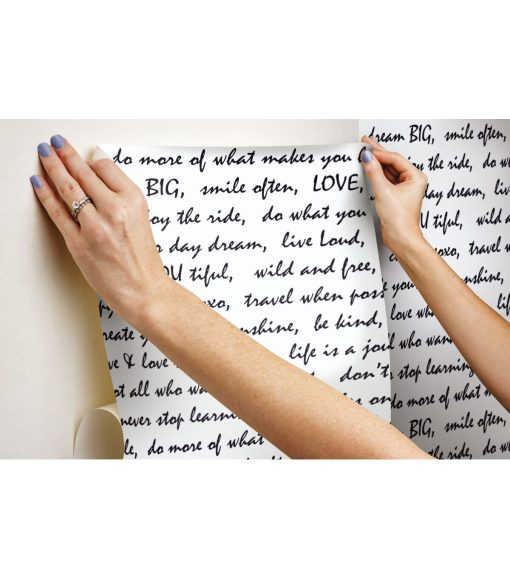 do more of what makes you
BIG, smile often, LOVE,
the ride, do what you
day dream, live Loud,
U tiful, wild and free,
xo, travel when pos
nshine, be kind,
& love life is a jou
ot all who wa don't
never stop learnin
le, do more of what
dream BIG, smile often,
the ride, do w
day dream, live
U tiful, wild a
oxo, travel w
e you nshine,
love wh life
l who wan
stop learning
do more of what m
BIG, smile often,
the ride, do w